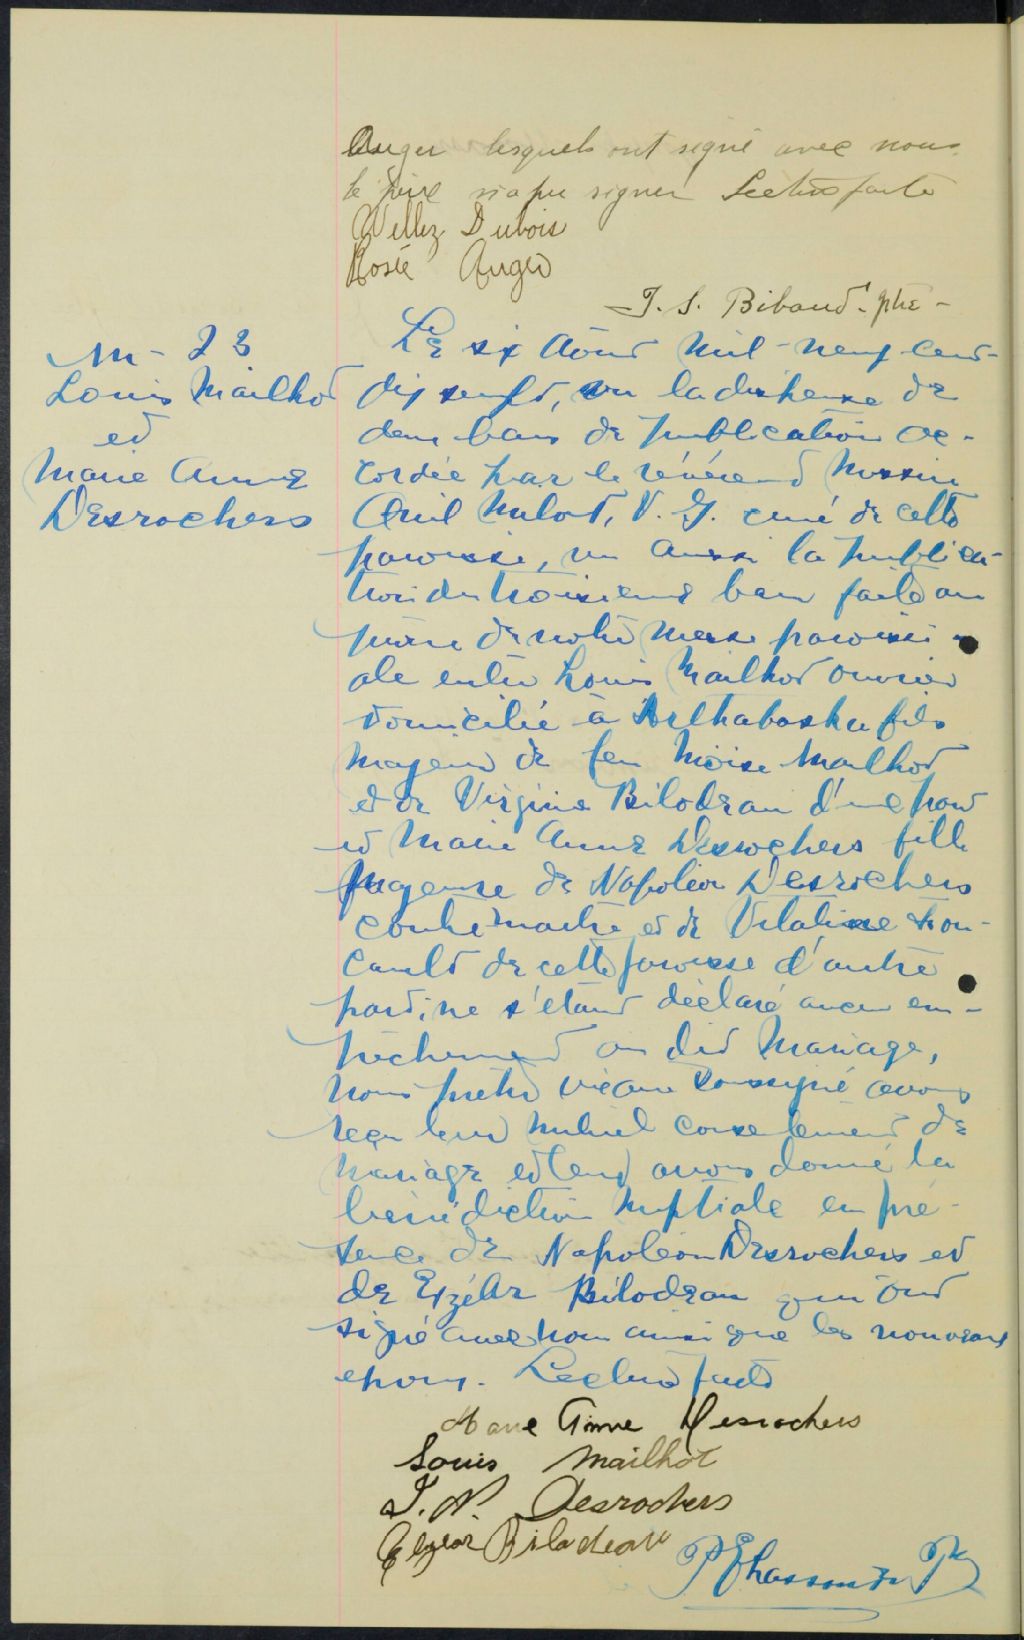 Auger lesquels ont signé avec nous.
le père n'a pu signer Lecture faite
Willez Dubois
Rosée Auger
J. S. Bibaud. ptre -
M - 23
Louis Mailhot
et
Marie Anne
Desrochers
Le six Août mil-neuf-cent-
dix sept, vu la dispense de
deux bans de publication ac-
cordée par le révérend Messire
Cril Mulot, V. G. curé de cette
paroisse, vu aussi la publica-
tion du troisième ban faite au
prône de notre messe paroissi-
ale entre Louis Mailhot ouvrier
domicilié à Arthabaska fils
majeur de feu Moïse Mailhot
et de Virginie Bilodeau d'une part
et Marie Anne Desrochers fille
majeure de Napoléon Desrochers
contremaître et de Vitaline Fou-
cault de cette paroisse d'autre
part; ne s'étant déclaré aucun em-
pêchement au dit Mariage,
nous prêtre vicaire soussigné avons
reçu leur mutuel consentement de
mariage et leur avons donné la
bénédiction nuptiale en pré-
sence de Napoléon Desrochers et
de Elzéar Bilodeau qui ont
signé avec nous ainsi que les nouveaux
epoux. Lecture faite
Marie Anne Desrochers
Louis Mailhot
J. N. Desrochers
Elzear Bilodeau